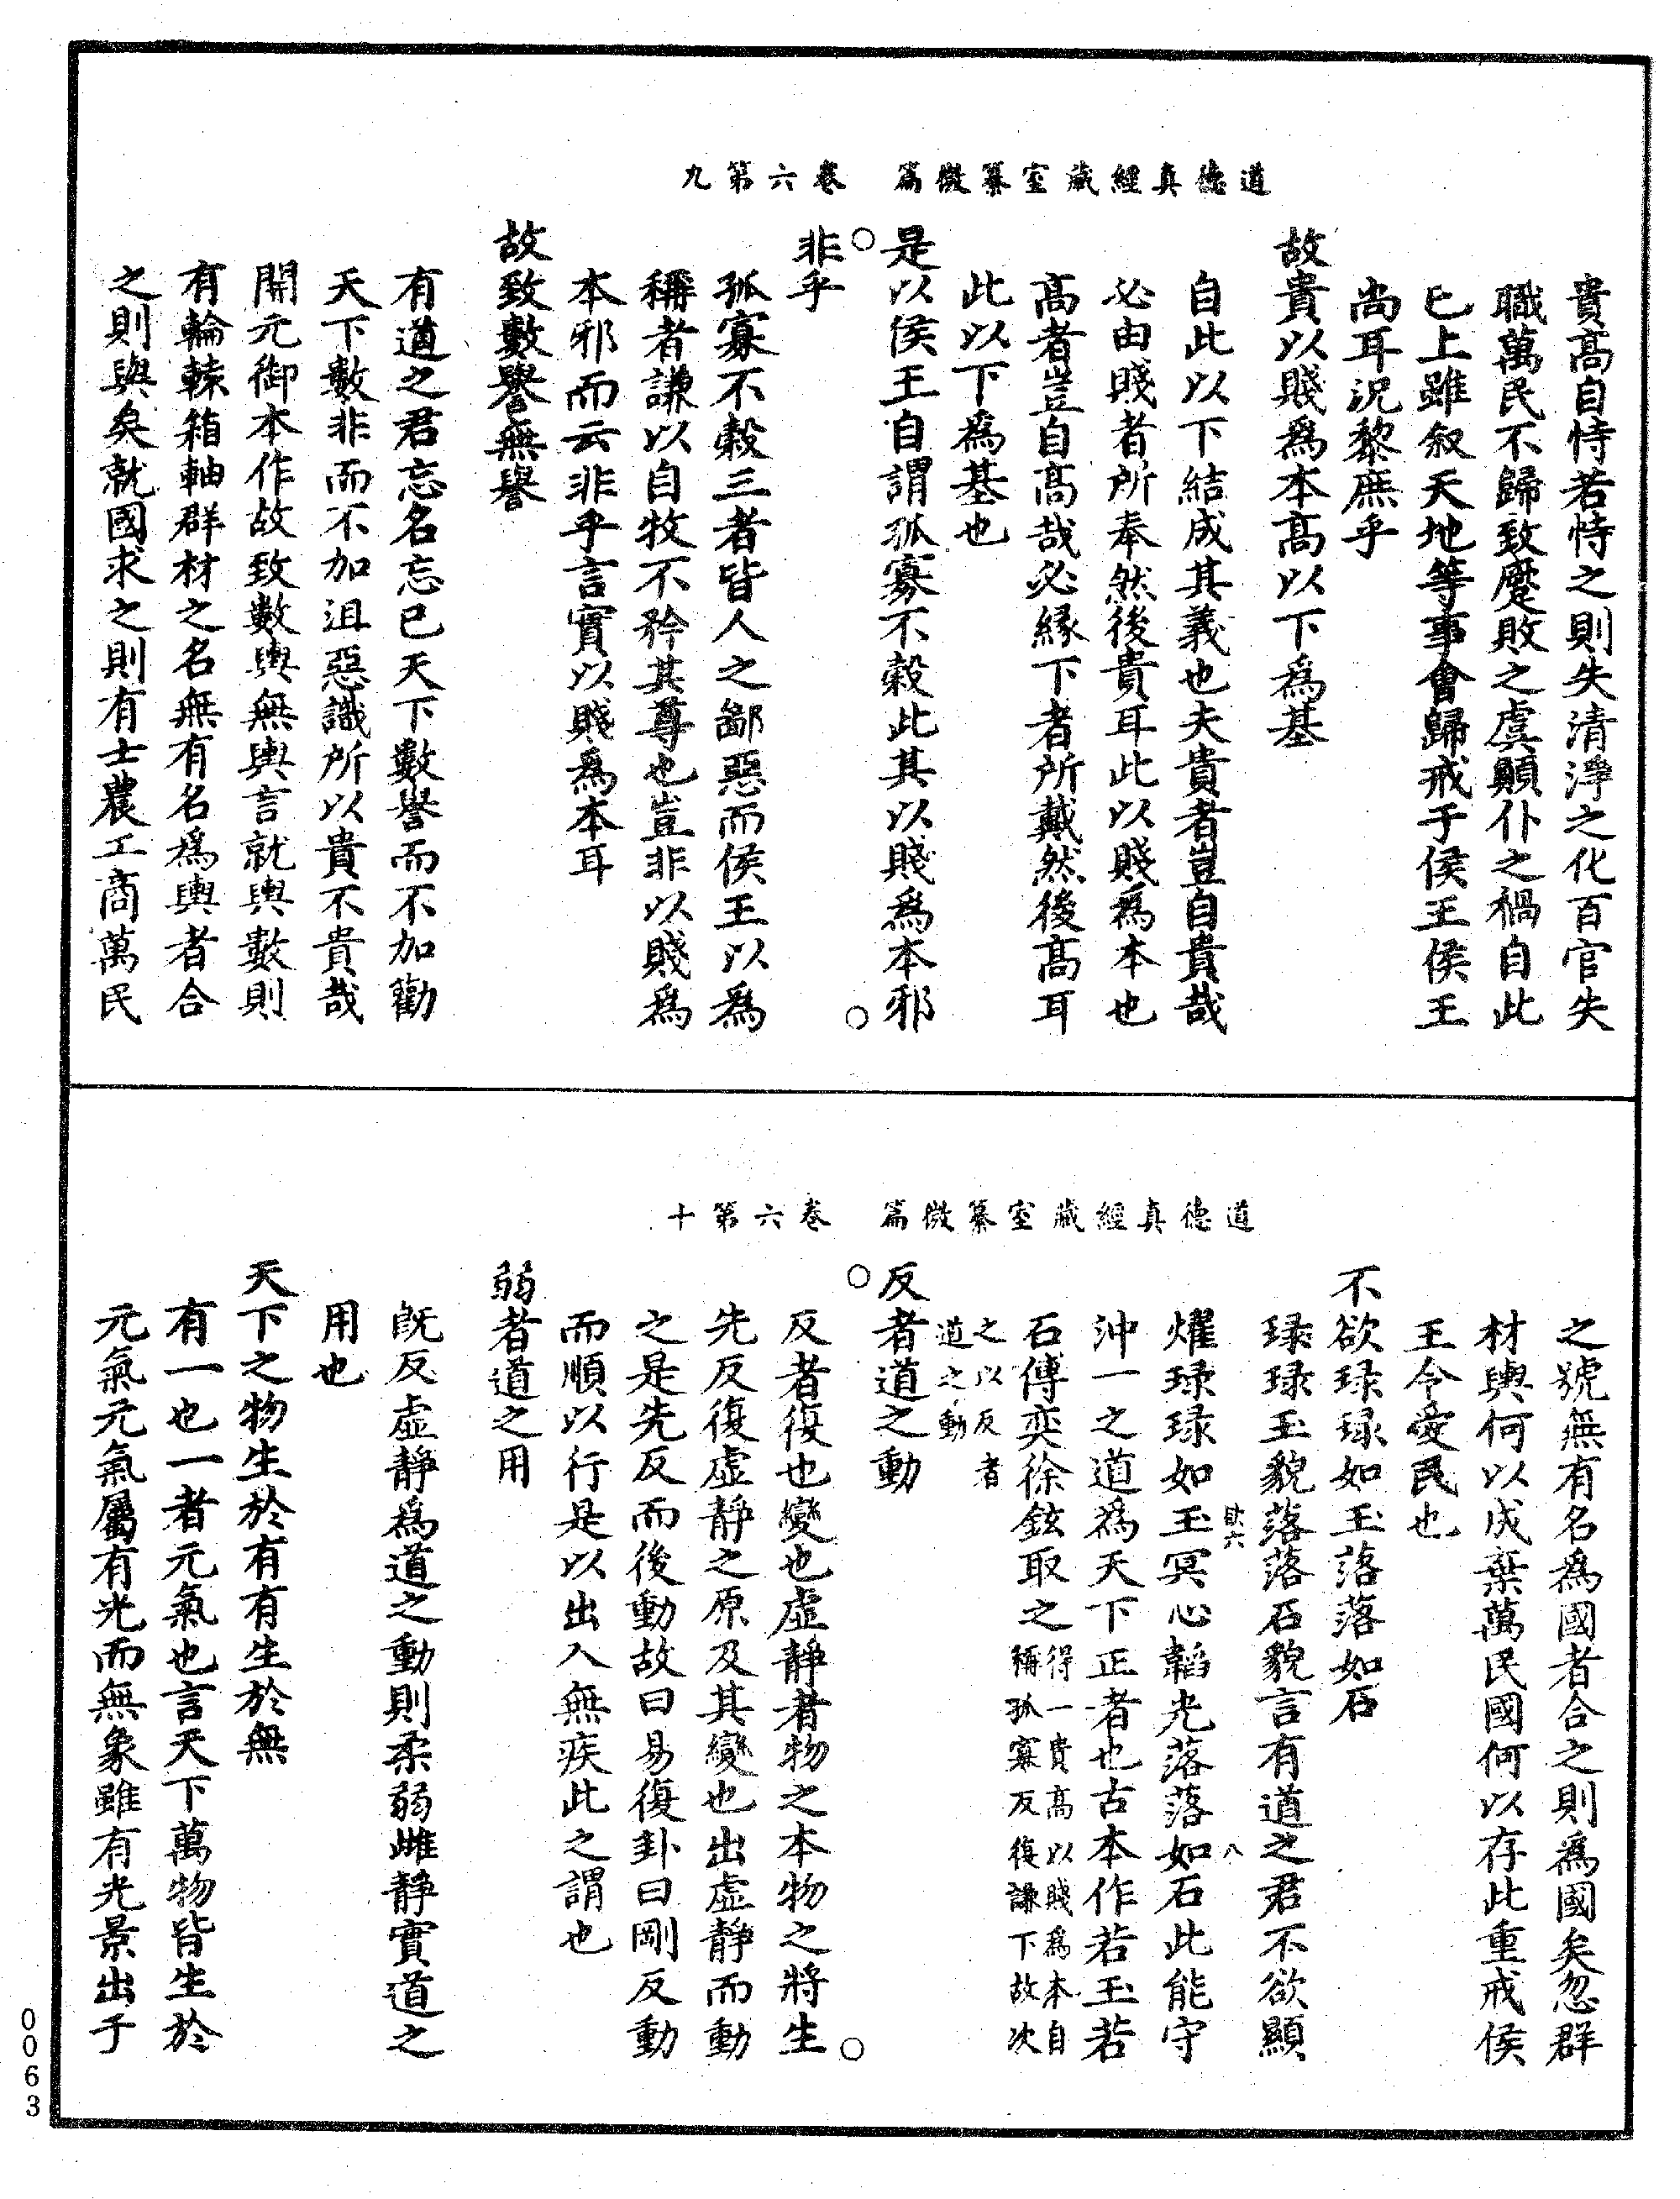 道德真經藏室纂微篇　卷六第九
貴高自恃若恃之則失清淨之化百官失
職萬民不歸致壓敗之虞顛仆之禍自此
已上雖叙天地等事會歸戒于侯王侯王
尚耳況黎庶乎
故貴以賤爲本高以下爲基
自此以下結成其義也夫貴者豈自貴哉
必由賤者所奉然後貴耳此以賤爲本也
高者豈自高哉必緣下者所戴然後高耳
此以下爲基也
是以侯王自謂孤寡不穀此其以賤爲本邪
○　○
非乎
孤寡不穀三者皆人之鄙惡而侯王以爲
稱者謙以自牧不矜其尊也豈非以賤爲
本邪而云非乎言實以賤爲本耳
故致數譽無譽
有道之君忘名忘已天下數譽而不加勸
天下數非而不加沮惡識所以貴不貴哉
開元御本作故致數輿無輿言就輿數則
有輪轅箱軸群材之名無有名爲輿者合
之則輿矣就國求之則有士農工商萬民
道德真經藏室纂微篇　卷六第十
之號無有名爲國者合之則爲國矣忽群
材輿何以成棄萬民國何以存此重戒侯
王令愛民也
不欲琭琭如玉落落如石
琭琭玉貌落落石貌言有道之君不欲顯
欿六　八
燿琭琭如玉冥心韜光落落如石此能守
沖一之道爲天下正者也古本作若玉若
石傅奕徐鉉取之得一貴高以賤爲本自
稱孤寡反復謙下故次
之以反者
道之動
反者道之動
○　○
反者復也變也虛靜者物之本物之將生
先反復虛靜之原及其變也出虛靜而動
之是先反而後動故曰易復卦曰剛反動
而順以行是以出入無疾此之謂也
弱者道之用
旣反虛靜爲道之動則柔弱雌靜實道之
用也
天下之物生於有有生於無
有一也一者元氣也言天下萬物皆生於
元氣元氣屬有光而無象雖有光景出于
0063